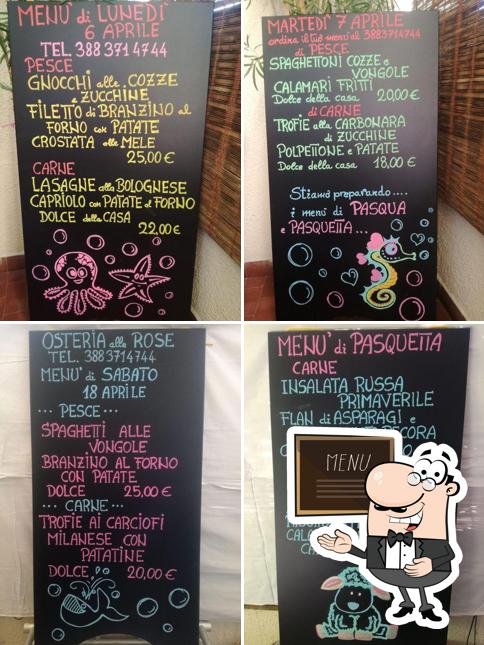 MENU di LUNEDÌ
6 APRILE
TEL 388 371 4744
PESCE
GNOCCHI alle COZZE
e ZUCCHINE
FILETTO di BRANZINO al
FORNO con PATATE
CROSTATA alle MELE
25,00 €
CARNE
LASAGNE alla BOLOGNESE
CAPRIOLO con PATATE al FORNO
DOLCE della CASA
22,00 €
MARTEDÌ 7 APRILE
ordina il tuo menù al 3883714744
di PESCE
SPAGHETTONI COZZE e
VONGOLE
CALAMARI FRITTI
Dolce della casa 20,00 €
di CARNE
TROFIE alla CARBONARA
di ZUCCHINE
POLPETTONE e PATATE
Dolce della casa 18,00 €
Stiamo preparando....
i menù di PASQUA
e PASQUETTA...
OSTERIA alle ROSE
TEL. 388 3714744
MENU' di SABATO
18 APRILE
... PESCE...
SPAGHETTI ALLE
VONGOLE
BRANZINO AL FORNO
CON PATATE
DOLCE 25,00 €
... CARNE...
TROFIE AI CARCIOFI
MILANESE CON
PATATINE
DOLCE 20,00 €
MENU' di PASQUETTA
CARNE
INSALATA RUSSA
PRIMAVERILE
FLAN di ASPARAGI e
PECORA
MENU